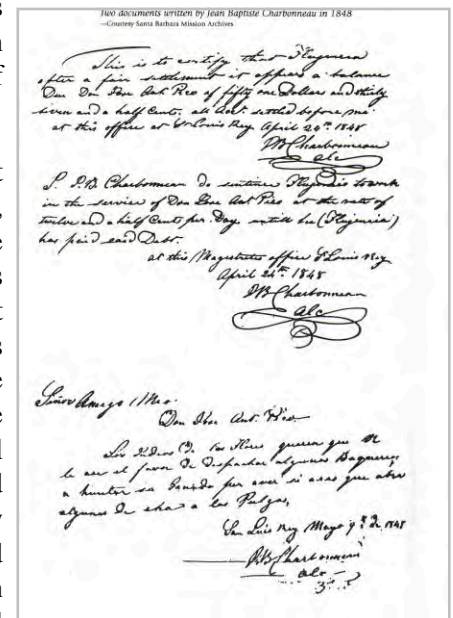 Two documents written by Jean Baptiste Charbonneau in 1848
—Courtesy Santa Barbara Mission Archives
This is to certify that Flujencia
after a fair settlement it appears a balance
Due Don Jose Ant Pico of fifty one Dollars and thirty
seven and a half Cents. all Act. settled before me
at this office at St Louis Rey April 24th 1848
JB Charbonneau
alc
I. J.B. Charbonneau do sentence Flujencio to work
in the service of Don Jose Ant Pico at the rate of
twelve and a half Cents per. Day until he (Flujencia)
has paid said Debt.
at this Magistrates office St Louis Rey
April 24th 1848
JB Charbonneau
alc
Señor Amigo Mio
Don Jose Ant. Pico
Los Indios De las Flores queren que
le aer el favor De Despachar algunos Baqueros
a huntar su Ganado por aver si acas que
algunos De ehas a las Pulgas,
San Luis Rey Mayo De 1848
JB Charbonneau
alc